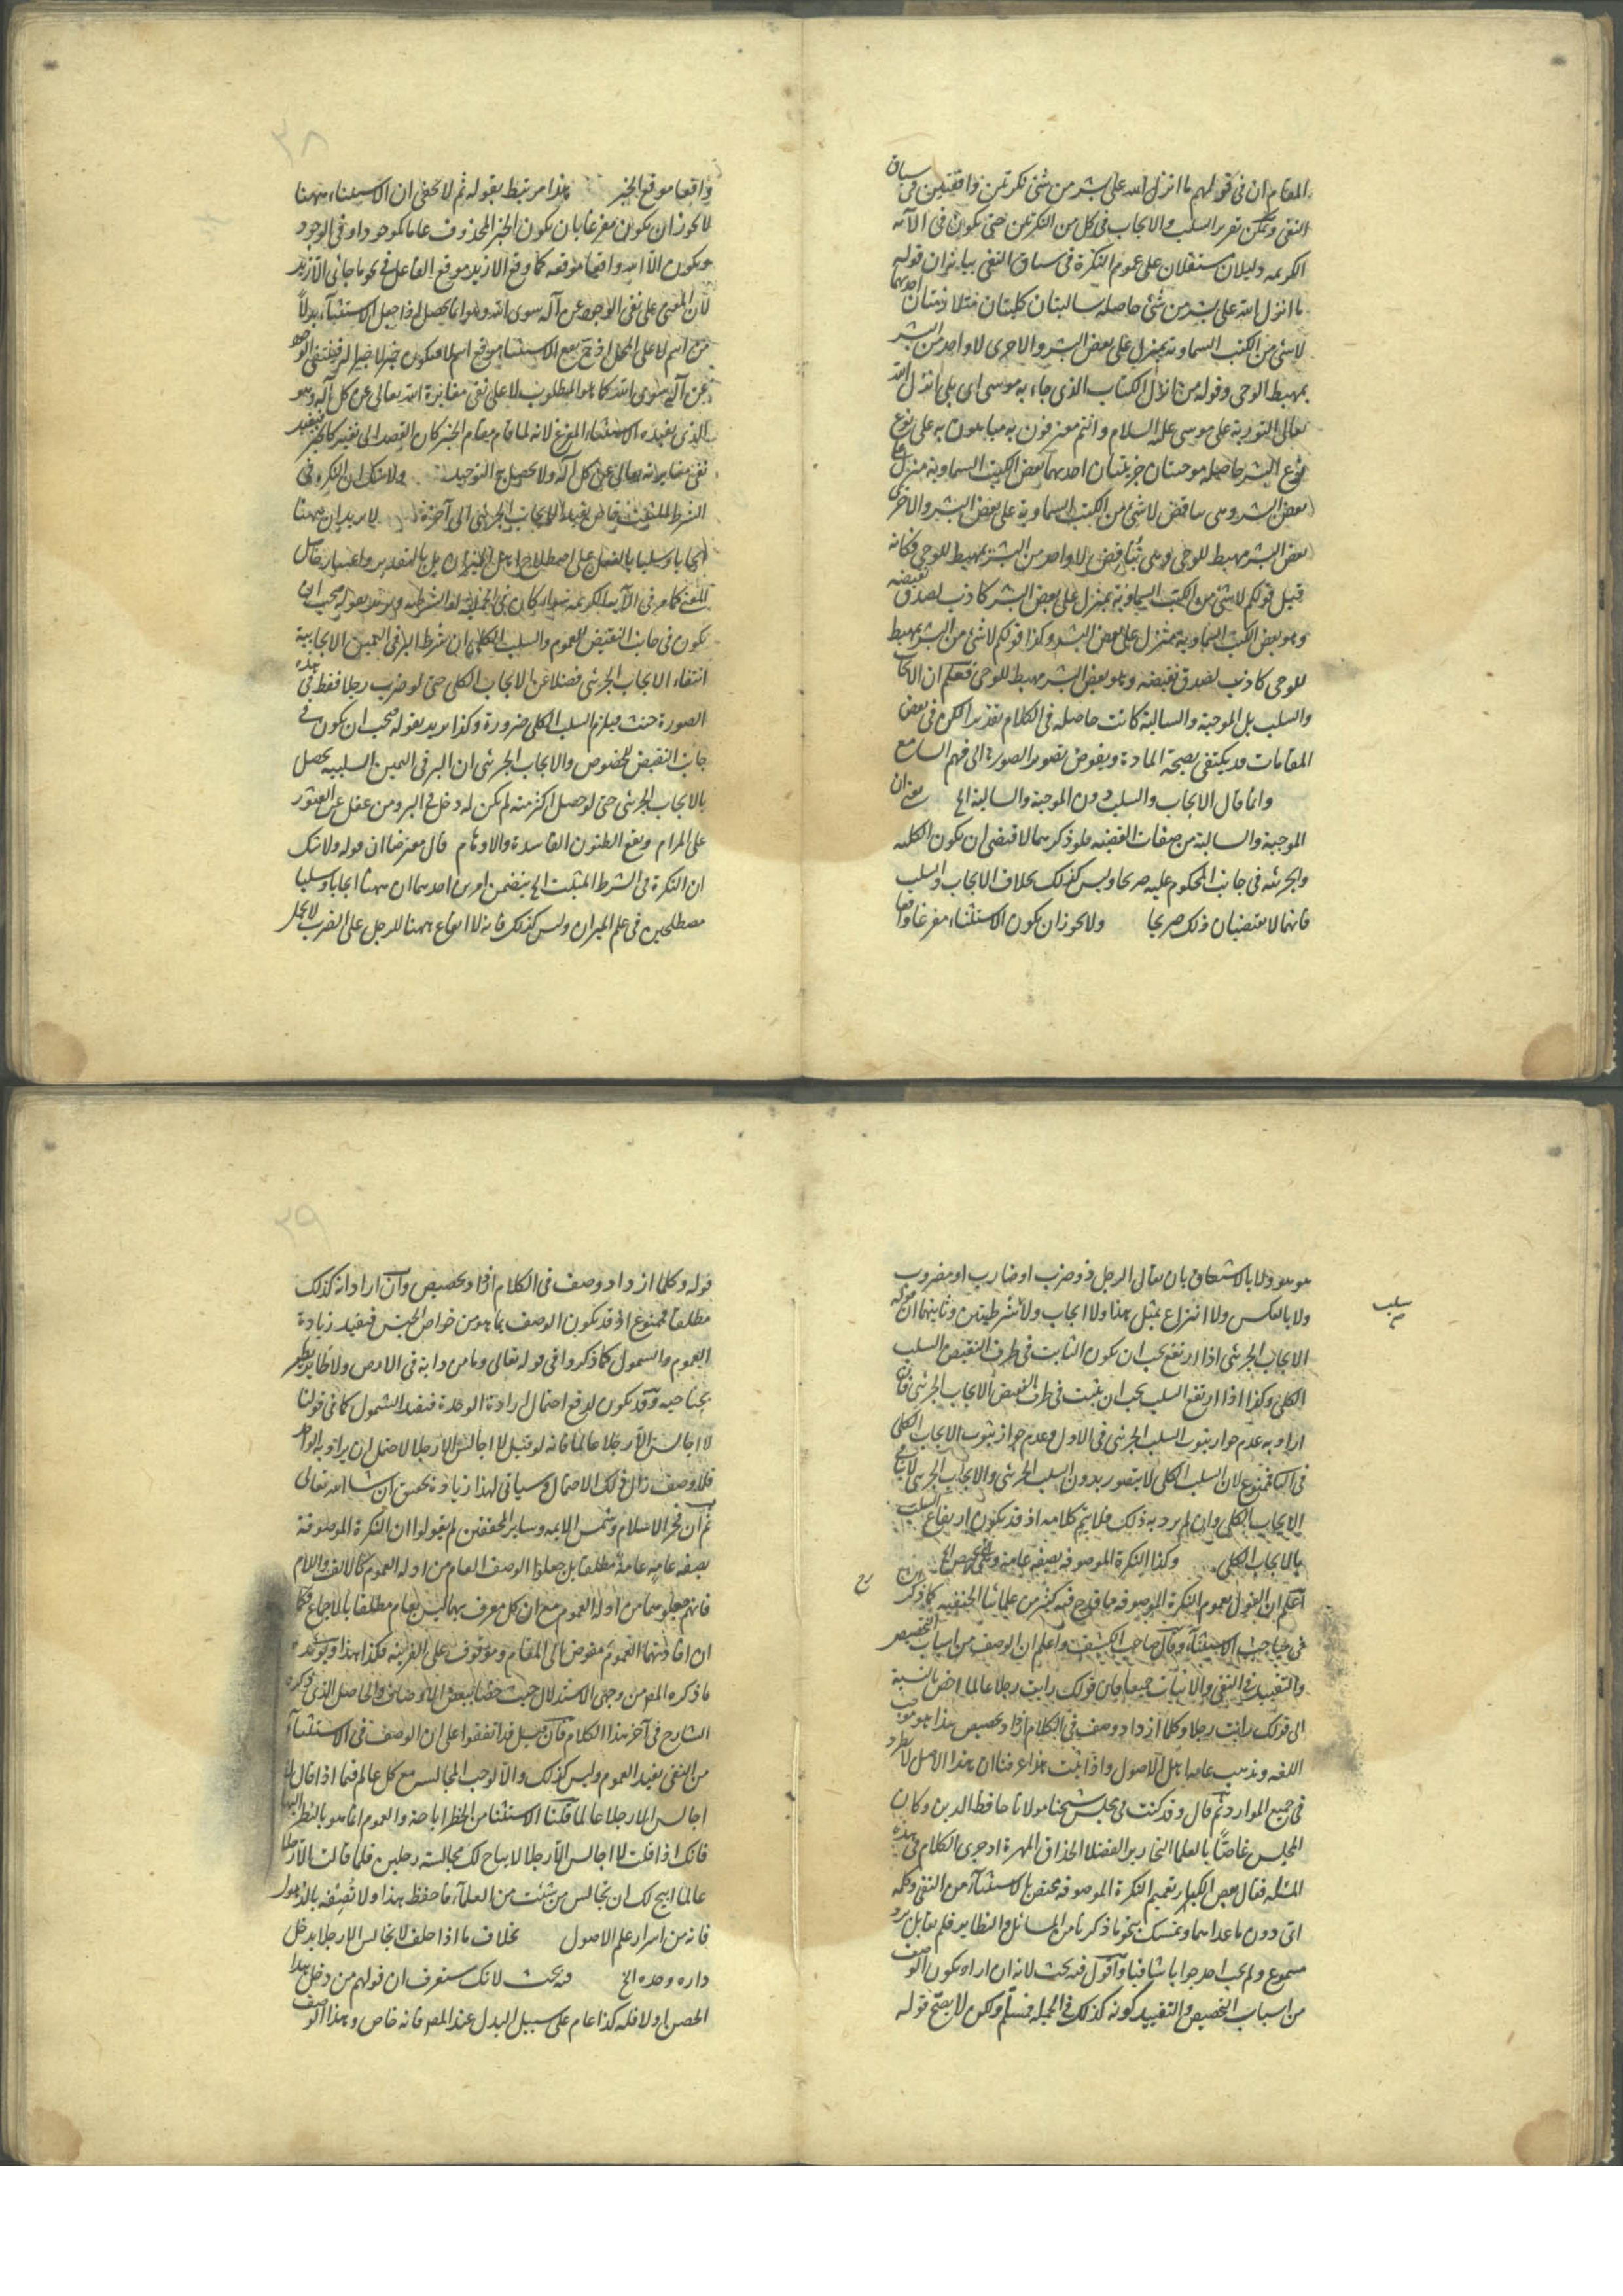 المقام ان فى قولهم ما انزل الله على بشر من شئ نكرتين واقعتين فى سياق
النفى ويمكن تقرير السلب والايجاب فى كل من النكرتين حتى يكون فى الآية
الكريمة دليلان مستقلان على عموم النكرة فى سياق النفى بيانه ان قوله
ما انزل الله على بشر من شئ حاصله سالبتان كليتان مثلا زمتان احديهما
لاشئ من الكتب السماوية بمنزل على بعض البشر والاخرى لا واحد من البشر
بمهبط الوحى وقوله من انزل الكتاب الذى جاء به موسى اى بلى انزل الله
تعالى التورية على موسى عليه السلام وانتم معترفون به مباهون به على نوع
نوع البشر حاصله موجبتان جزئيتان احديهما بعض الكتب السماوية منزل على
بعض البشر وهى تناقض لاشئ من الكتب السماوية على بعض البشر والاخرى
بعض البشر مهبط للوحى وهى تناقض لا واحد من البشر بمهبط للوحى فكانه
قيل قولكم لاشئ من الكتب السماوية بمنزل على بعض البشر كاذب لصدق نقيضه
وهو بعض الكتب السماوية بمنزل على بعض البشر وكذا قولكم لاشئ من البشر بمهبط
للوحى كاذب لصدق نقيضه وهو بعض البشر مهبط للوحى فعلم ان الايجاب
والسلب بل الموجبة والسالبة كانت حاصلة فى الكلام بقدر الكن فى بعض
المقامات قد يكتفى بصحة المادة ويفوض تصوير الصورة الى فهم السامع
وانما قال الايجاب والسلب دون الموجبة والسالبة الخ يعنى ان
الموجبة والسالبة من صفات القضية فلو ذكرهما لاقتضى ان يكون الكلية
والجزئية فى جانب المحكوم عليه صريحا وليس كذلك بخلاف الايجاب والسلب
فانهما لا يقتضيان ذلك صريحا ولا يجوز ان يكون الاستثناء مفرغا واقعا
واقعا موقع الخبر هذا مرتبط بقوله ثم لا يخفى ان الاستثناء ههنا
لا يجوز ان يكون مفرغا بان يكون الخبر المحذوف عاما كموجود او فى الوجود
ويكون الا الله واقعا موقعه كما وقع الا زيد موقع الفاعل فى نحو ما جائنى الا زيد
لان المعنى على نفى الوجود عن آله سوى الله وهو انما يحصل اذا جعل الاستثناء بدلا
من اسم لا على المحل اذ ح يقع الاستثناء موقع اسم لا فيكون خبر لا خبرا له فينتفى الوجود
عن آله سوى الله كما هو المطلوب لا على نفى مغايرة الله تعالى عن كل آله وهو
الذى يفيده الاستثناء المفرغ لانه لما قام مقام الخبر كان القصد الى نفيه كالخبر فيفيد
نفى مغايرته تعالى عن كل آله ولا يحصل به التوحيد ولا شك ان النكرة فى
الشرط المثبت خاص يفيد الايجاب الجزئى الى آخره لا يريد ان ههنا
ايجابا وسلبا بالفعل على اصطلاح اهل الميزان بل بالتقدير واعتبار حاصل
المعنى كما مر فى الآية الكريمة سواء كان فى الحملية او الشرطية ويريد بقوله يجب ان
يكون فى جانب النقيض للعموم والسلب الكلى ان شرط البر فى اليمين الايجابية
انتفاء الايجاب الجزئى فضلا عن الايجاب الكلى حتى لو ضرب رجلا فقط فى هذه
الصورة حنث فيلزم السلب الكلى ضرورة وكذا يريد بقوله يجب ان يكون فى
جانب النقيض للخصوص والايجاب الجزئى ان البر فى اليمين السلبية يحصل
بالايجاب الجزئى حتى لو حصل اكثر منه لم يكن له دخل فى البر ومن غفل عن العثور
على المرام ويقع الظنون الفاسدة والاوهام قال معترضا ان قوله ولا شك
ان النكرة فى الشرط المثبت الخ يتضمن امرين احدهما ان ههنا ايجابا وسلبا
مصطلحين فى علم الميزان وليس كذلك فانه لا ايقاع ههنا للرجل على الضرب لا بحمل
هو هو ولا بالاشتقاق بان يقال الرجل ذو ضرب او ضارب او مضروب
ولا بالعكس ولا انتزاع بمثل هذا ولا ايجاب ولا شرطيتين وثانيهما ان قوله
سلب
صح
الايجاب الجزئى اذا ارتفع يجب ان يكون الثابت فى طرف النقيض السلب
الكلى وكذا اذا ارتفع السلب يجب ان يثبت فى طرف النقيض الايجاب الجزئى فان
اراد به عدم جواز ثبوت السلب الجزئى فى الاول وعدم جواز ثبوت الايجاب الكلى
فى الثانى فممنوع لان السلب الكلى لا يتصور بدون السلب الجزئى والايجاب الجزئى لا ينافى
الايجاب الكلى وان لم يرد به ذلك فلا يتم كلامه اذ قد يكون ارتفاع السلب
بالايجاب الكلى وكذا النكرة الموصوفة بصفة عامة
اعلم ان القول بعموم النكرة الموصوفة مما قدح فيه كثير من علمائنا الحنفية كما ذكر
فى مباحث الاستثناء وقال صاحب الكشف واعلم ان الوصف من اسباب التخصيص
والتقييد فى النفى والاثبات جميعا فان قولك رايت رجلا عالما اخص بالنسبة
الى قولك رايت رجلا وكلما ازداد وصف فى الكلام ازداد تخصيص هذا هو موجب
اللغة ومذهب عامة اهل الاصول واذا ثبت هذا عرفنا ان هذا الاصل لا يطرد
فى جميع الموارد ثم قال وقد كنت فى مجلس شيخنا مولانا حافظ الدين وكان
المجلس غاصا بالعلماء النحارير الفضلاء الحذاق المهرة اذ جرى الكلام فى هذه
المسئلة فقال بعض الكبار تعميم النكرة الموصوفة مختص بالاستثناء من النفى وكلمة
اى دون ما عداهما وتمسك بنحو ما ذكرنا من المسائل والنظاير فلم يقابل برد
مسموع ولم يجب احد جوابا شافيا واقول فيه بحث لانه ان اراد بكون الوصف
من اسباب التخصيص والتقييد كونه كذلك فى الجملة فمسلم ولكن لا يصح قوله
قوله وكلما ازداد وصف فى الكلام ازداد تخصيص وان اراد انه كذلك
مطلقا فممنوع اذ قد يكون الوصف بما هو من خواص الجنس فيفيد زيادة
العموم والشمول كما ذكروا فى قوله تعالى وما من دابة فى الارض ولا طاير يطير
بجناحيه وقد يكون لدفع احتمال ارادة الوحدة فيفيد الشمول كما فى قولنا
لا اجالس الا رجلا عالما فانه لو قيل لا اجالس الا رجلا لاحتمل ان يراد به الواحد
فلما وصف زال ذلك الاحتمال وسياتى لهذا زيادة تحقيق ان شاء الله تعالى
ثم ان فخر الاسلام وشمس الايمة وساير المحققين لم يقولوا ان النكرة الموصوفة
بصفة عامة عامة مطلقا بل جعلوا الوصف العام من ادلة العموم كالالف واللام
فانهم جعلوهما من ادلة العموم مع ان كل معرف بهما ليس بعام مطلقا بالاجماع فكما
ان افادتهما العموم مفوض الى المقام وموقوف على القرينة فكذا هذا ويؤيده
ما ذكره المص من وجهى الاستدلال حيث خصا ببعض الاوصاف والحاصل الذى ذكره
الشارح فى آخر هذا الكلام فان قيل قد اتفقوا على ان الوصف فى الاستثناء
من النفى يفيد العموم وليس كذلك والا لوجب المجالسة مع كل عالم فيما اذا قال لا
اجالس الا رجلا عالما قلنا الاستثناء من الحظر اباحة والعموم انما هو بالنظر اليها
فانك اذا قلت لا اجالس الا رجلا لا يباح لك مجالسة رجلين فلما قالت الا رجلا
عالما ابيح لك ان تجالس من شئت من العلماء فاحفظ هذا ولا تضيعه بالذهول
فانه من اسرار علم الاصول بخلاف ما اذا حلف لا يجالس الا رجلا يدخل
داره وحده الخ فيه بحث لانك ستعرف ان قولهم من دخل هذا
الحصن اولا فله كذا عام على سبيل البدل عند المص فانه خاص وهذا الوصف